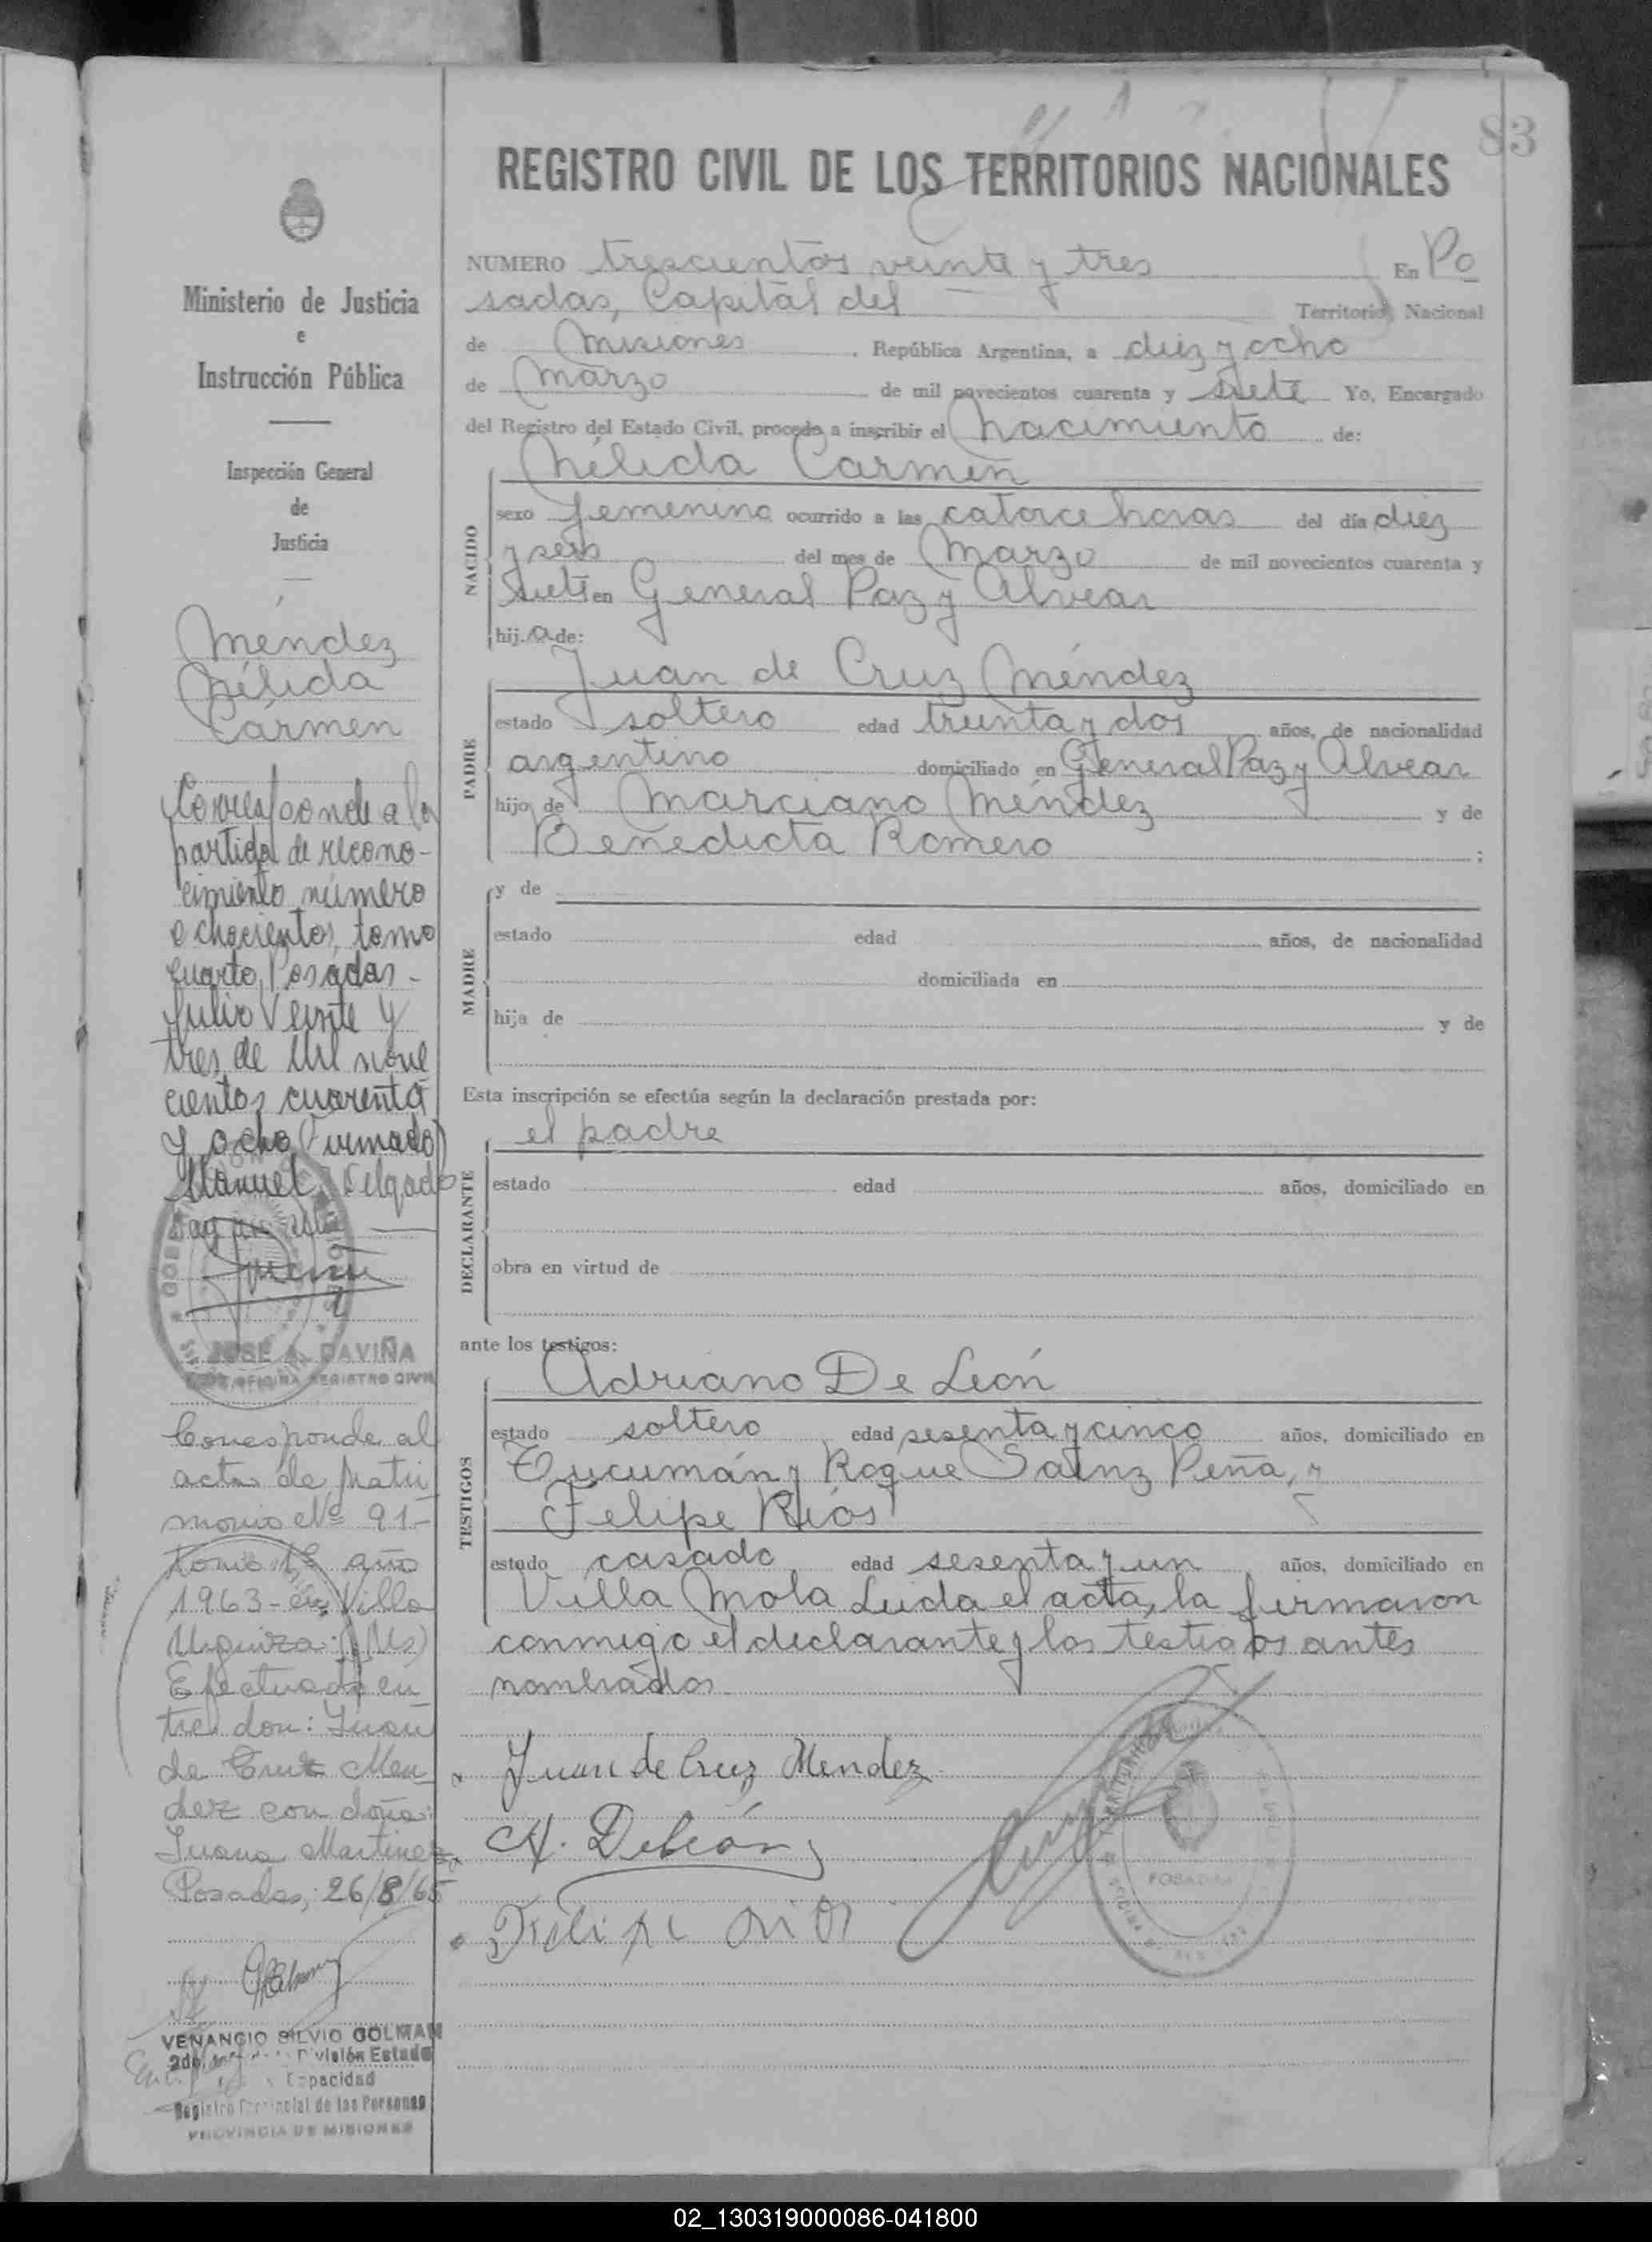 83
REGISTRO CIVIL DE LOS TERRITORIOS NACIONALES
NUMERO trescientos veinte y tres En Po
sadas, Capital del Territorio Nacional
de Misiones, República Argentina, a diez y ocho
de Marzo de mil novecientos cuarenta y siete Yo, Encargado
del Registro del Estado Civil, procedo a inscribir el nacimiento de:
NACIDO
Nélida Carmen
sexo femenino ocurrido a las catorce horas del día diez
y seis del mes de Marzo de mil novecientos cuarenta y
siete en General Paz y Alvear
hija de:
PADRE
Juan de Cruz Méndez
estado soltero edad treinta y dos años, de nacionalidad
argentino domiciliado en General Paz y Alvear
hijo de Marciano Méndez y de
Benedicta Romero ;
MADRE
y de
estado edad años, de nacionalidad
domiciliada en
hija de y de
Esta inscripción se efectúa según la declaración prestada por:
DECLARANTE
el padre
estado edad años, domiciliado en
obra en virtud de
ante los testigos:
TESTIGOS
Adriano De León
estado soltero edad sesenta y cinco años, domiciliado en
Tucumán y Roque Saenz Peña, y
Felipe Ríos
estado casado edad sesenta y un años, domiciliado en
Villa Mola Leida el acta, la firmaron
conmigo el declarante y los testigos antes
nombrados.
Juan de Cruz Mendez
A. DeLeón
Felipe rios
POSADAS
Ministerio de Justicia
e
Instrucción Pública
Inspección General
de
Justicia
Méndez
Nélida
Cármen
Corresponde a la
partida de recono-
cimiento número
ochocientos, tomo
cuarto, Posadas-
Julio Veinte y
tres de Mil nove
cientos cuarenta
y ocho (Firmado)
Manuel Delgado
JOSE A. DAVIÑA
OFICINA REGISTRO CIVIL
Corresponde al
acta de Matri
monio Nº 91-
tomo 1º año
1963- en Villa
Urquiza: (Ms)
Efectuado en
tre don: Juan
de Cruz Men
dez con doña:
Juana Martinez
Posadas, 26/8/65
VENANCIO SILVIO GOLMAN
División Estado
Capacidad
Registro Provincial de las Personas
PROVINCIA DE MISIONES
02_130319000086-041800